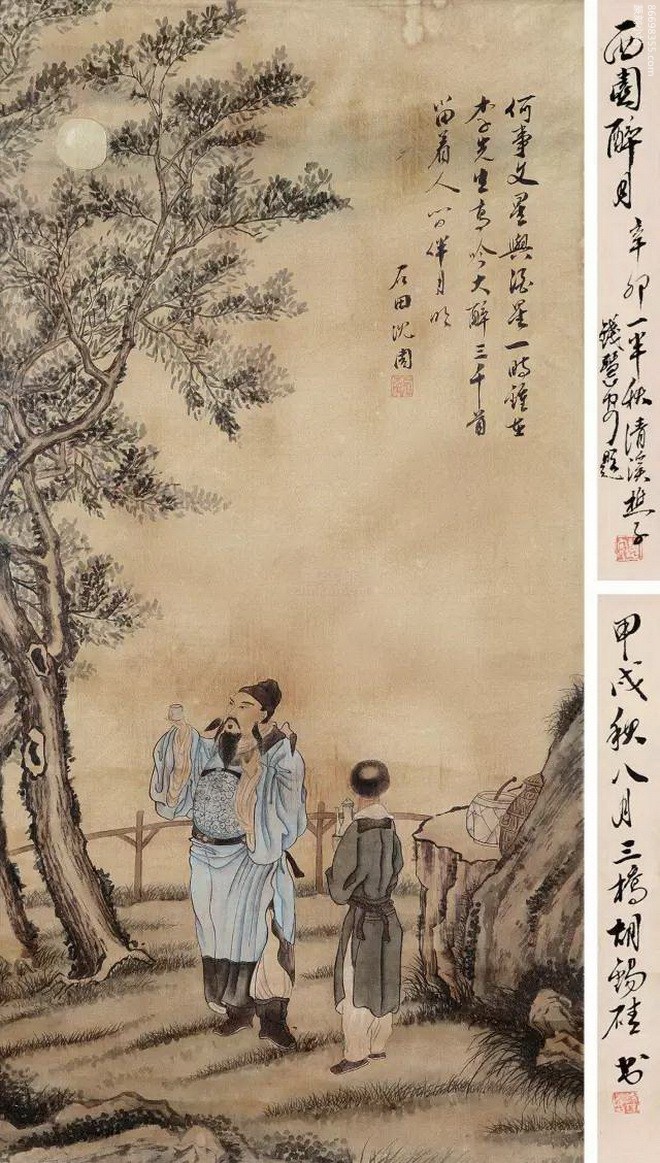 何事文星與酒星一時鍾在
李先生高吟大醉三千首
留着人間伴月明
石田沈周
西園醉月
辛卯一半秋清溪樵子
題
甲戌秋八月三橋胡錫
书
86698355.com